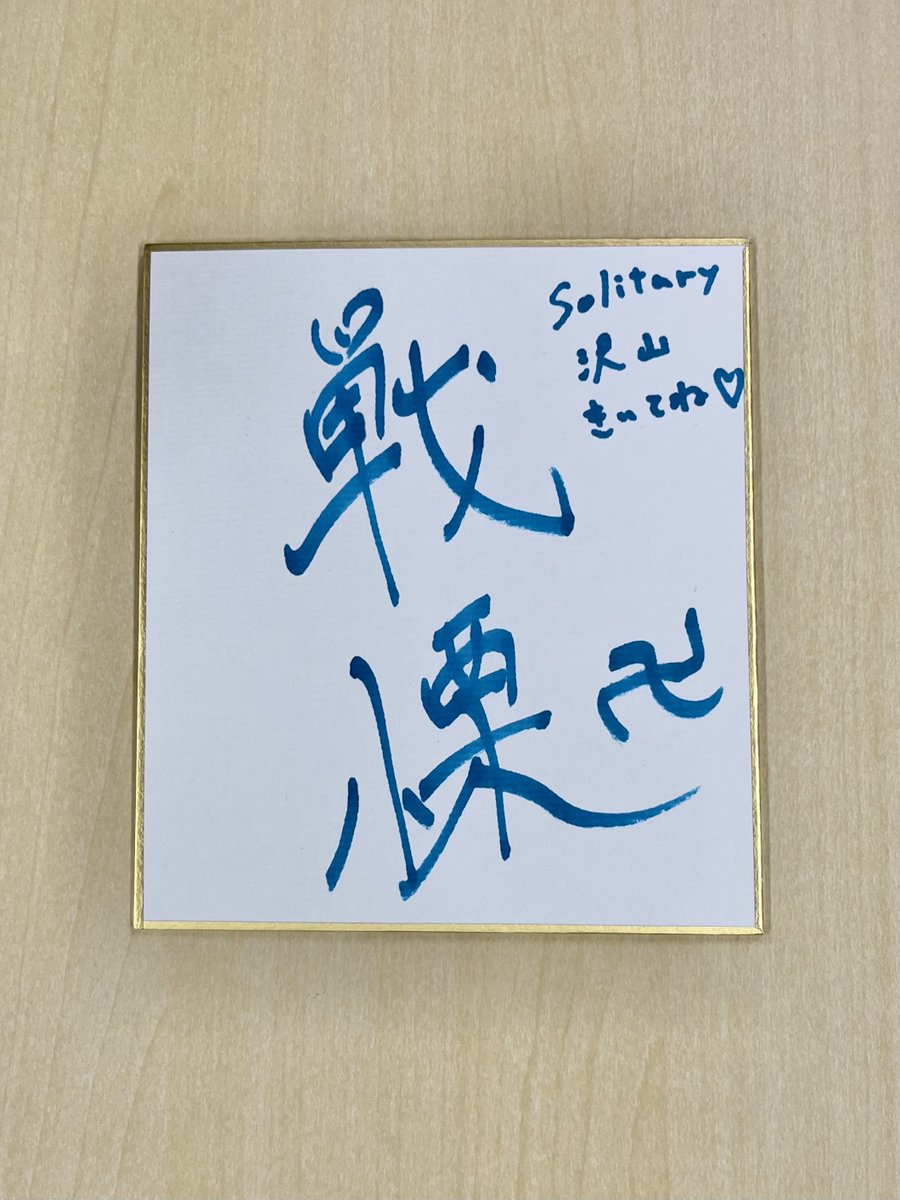 Solitary
沢山
きいてね♡
戰慄卍